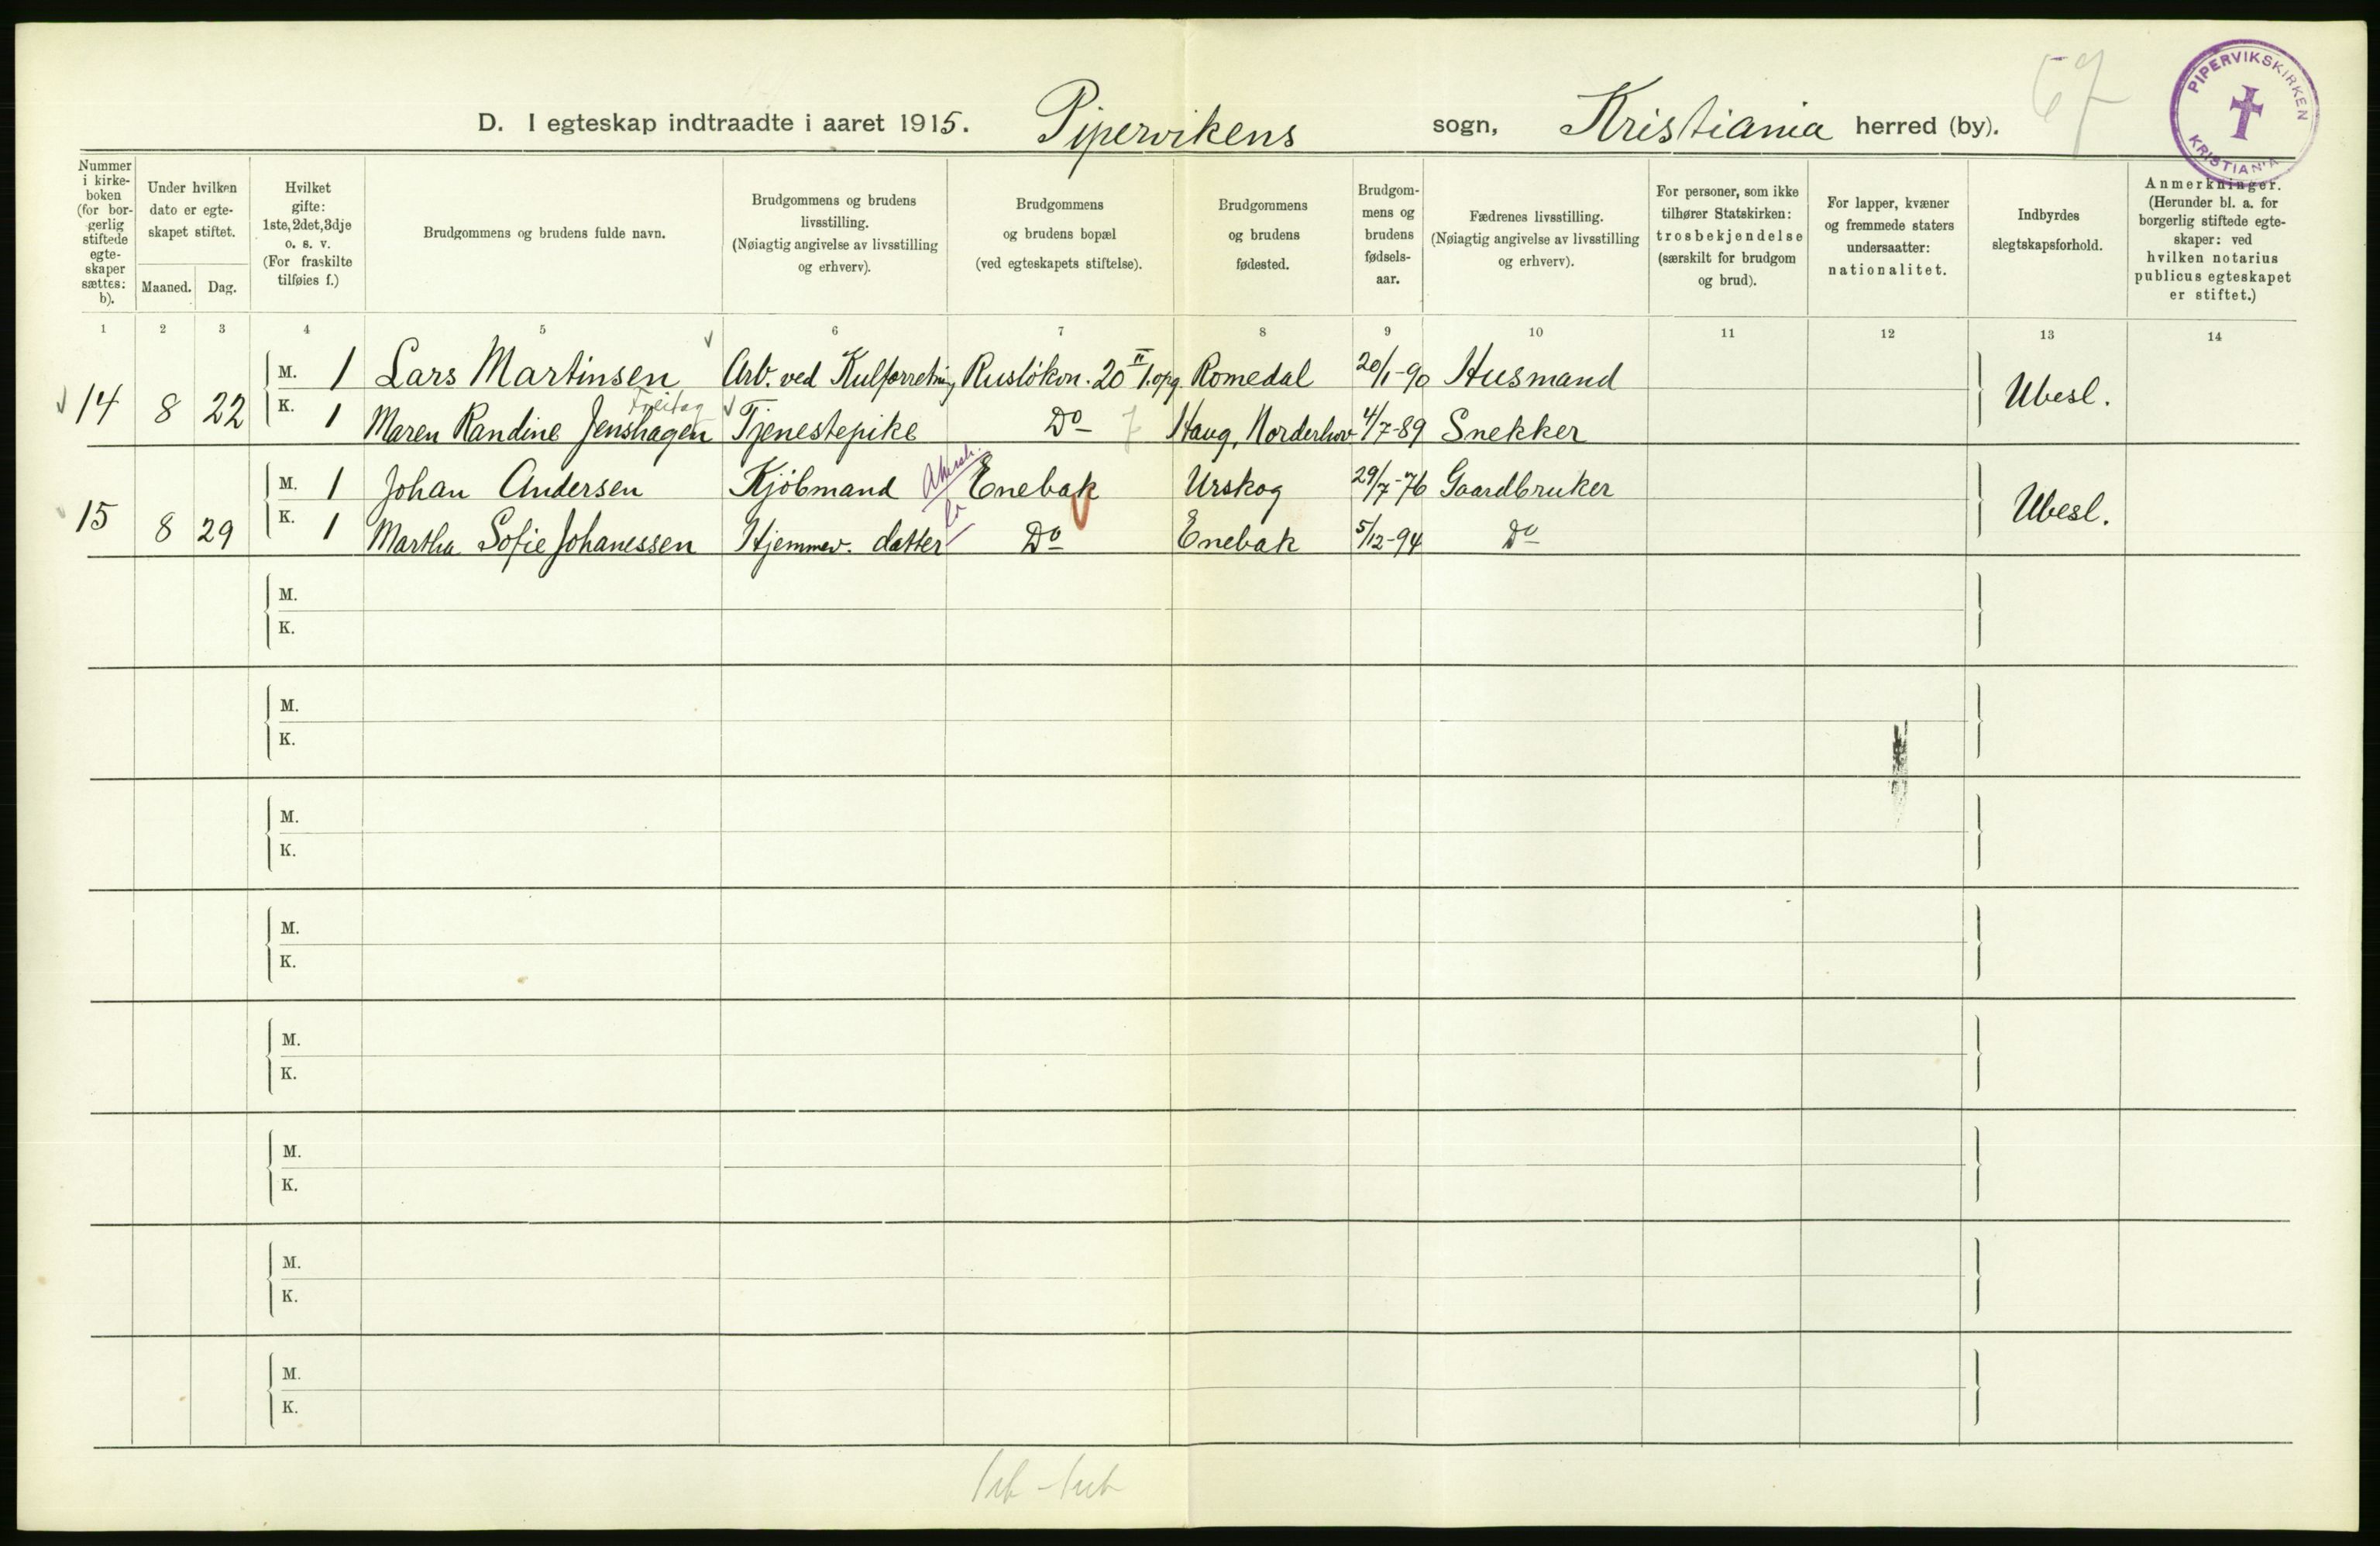 67
PIPERVIKSKIRKEN
KRISTIANIA
D. I egteskap indtraadte i aaret 1915. Pipervikens sogn, Kristiania herred (by).
Nummer
i kirke-
boken
(for bor-
gerlig
stiftede
egte-
skaper
sættes:
b).
Under hvilken
dato er egte-
skapet stiftet.
Maaned. Dag.
Hvilket
gifte:
1ste, 2det, 3dje
o. s. v.
(For fraskilte
tilføies f.)
Brudgommens og brudens fulde navn.
Brudgommens og brudens
livsstilling.
(Nøiagtig angivelse av livsstilling
og erhverv).
Brudgommens
og brudens bopæl
(ved egteskapets stiftelse).
Brudgommens
og brudens
fødested.
Brudgom-
mens og
brudens
fødsels-
aar.
Fædrenes livsstilling.
(Nøiagtig angivelse av livsstilling
og erhverv).
For personer, som ikke
tilhører Statskirken:
trosbekjendelse
(særskilt for brudgom
og brud).
For lapper, kvæner
og fremmede staters
undersaatter:
nationalitet.
Indbyrdes
slegtskapsforhold.
Anmerkninger.
(Herunder bl. a. for
borgerlig stiftede egte-
skaper: ved
hvilken notarius
publicus egteskapet
er stiftet.)
1 2 3 4 5 6 7 8 9 10 11 12 13 14
M. 1 Lars Martinsen Arb. ved Kulforretning Ruslökvn. 20 II 1. opg. Romedal 20/1-90 Husmand
14 8 22 Ubesl.
Freitag
K. 1 Maren Randine Jenshagen Tjenestepike Do 7 Haug, Norderhov 4/7-89 Snekker
M. 1 Johan Andersen Kjöbmand Akersh. Enebak Urskog 29/7-76 Gaardbruker
15 8 29 Ubesl.
K. 1 Martha Sofie Johanessen Hjemmev. datter Do Enebak 5/12-94 Do
M.
K.
M.
K.
M.
K.
M.
K.
M.
K.
M.
K.
M.
K.
M.
K.